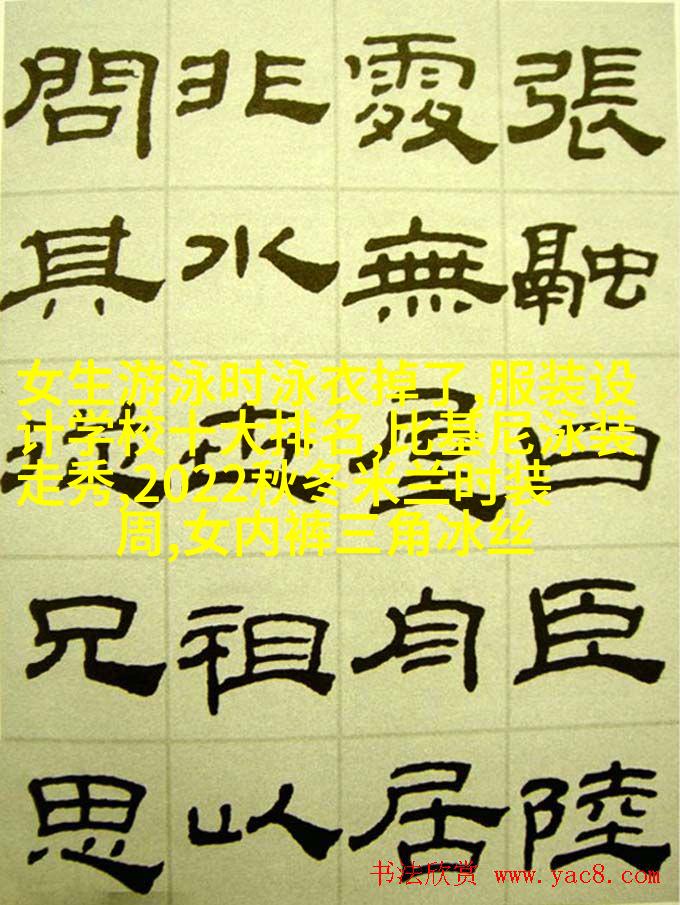 張融曰臣陸
處無屋舟居
非水祖以
問其兄思
女生游泳时泳衣掉了,服装设
计学校十大排名,比基尼泳装
走秀,2022秋冬米兰时装
周,女内裤三角冰丝
书法欣赏 www.yac8.com